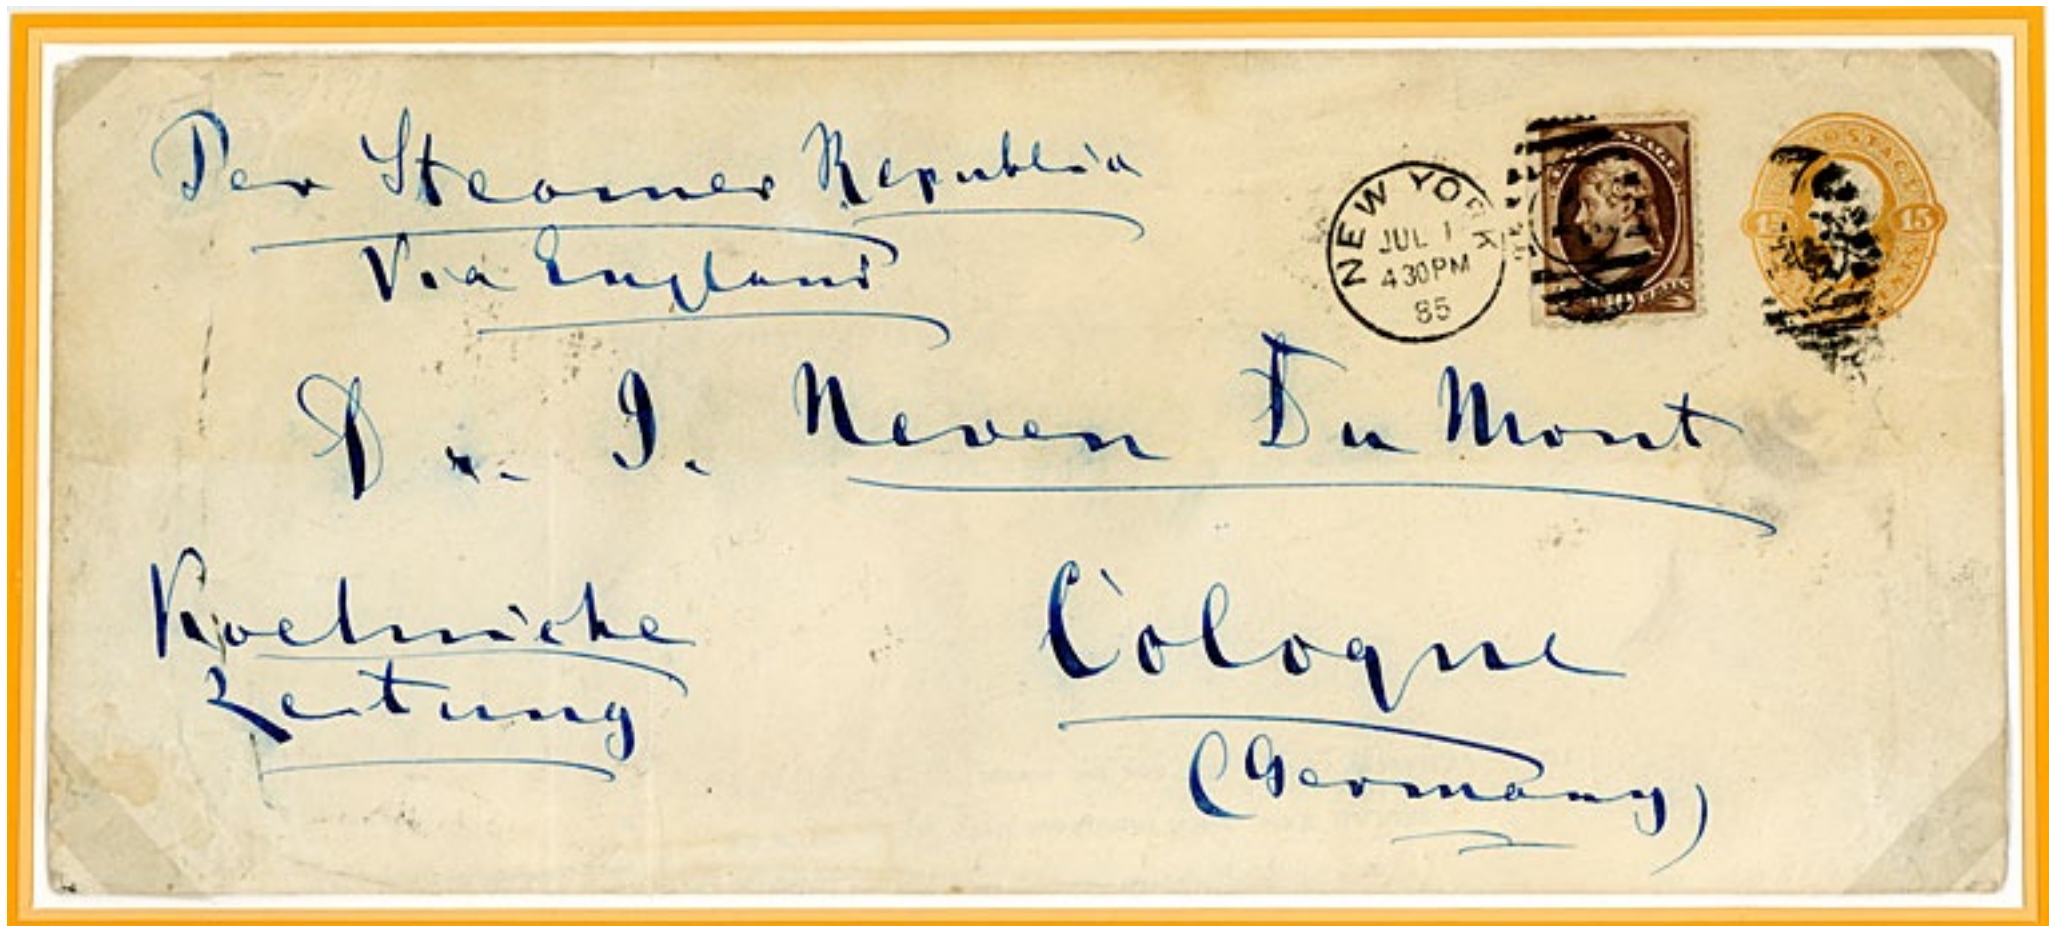 Per Steamer Republic
Via England
NEW YORK
JUL 1
430PM
85
POSTAGE
15
15
CENTS
Dr. J. Neven Du Mont
Koelnische
Zeitung
Cologne
(Germany)